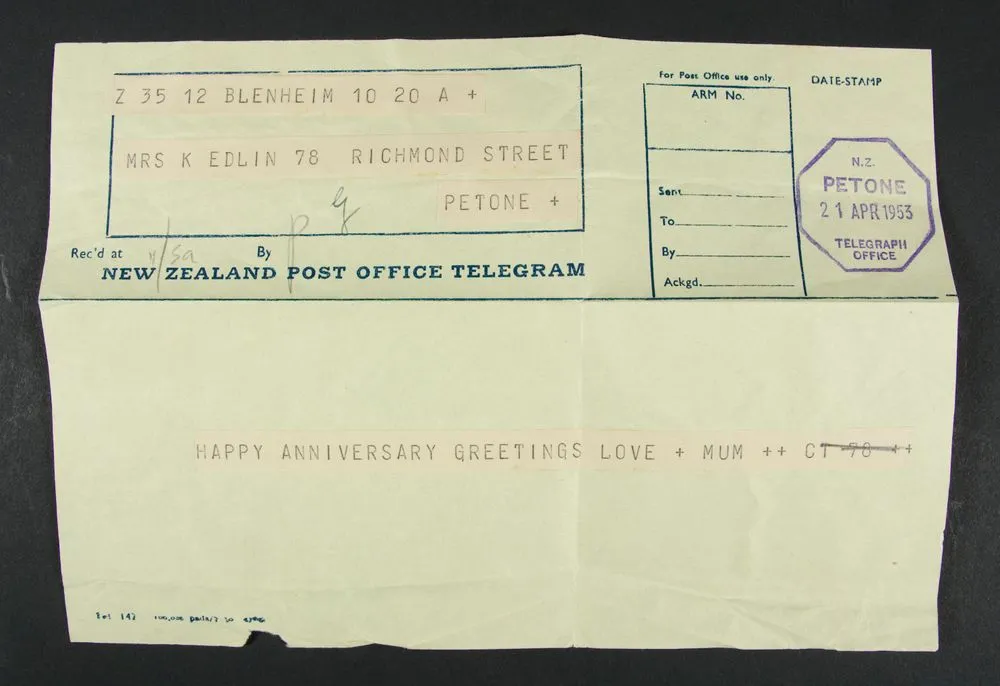 Z 35 12 BLENHEIM 10 20 A +
MRS K EDLIN 78 RICHMOND STREET
PETONE +
Rec'd at By
NEW ZEALAND POST OFFICE TELEGRAM
For Post Office use only.
ARM No.
Sent
To
By
Ackgd.
DATE-STAMP
N.Z.
PETONE
21 APR 1953
TELEGRAPH
OFFICE
HAPPY ANNIVERSARY GREETINGS LOVE + MUM ++ CT 78 ++
142